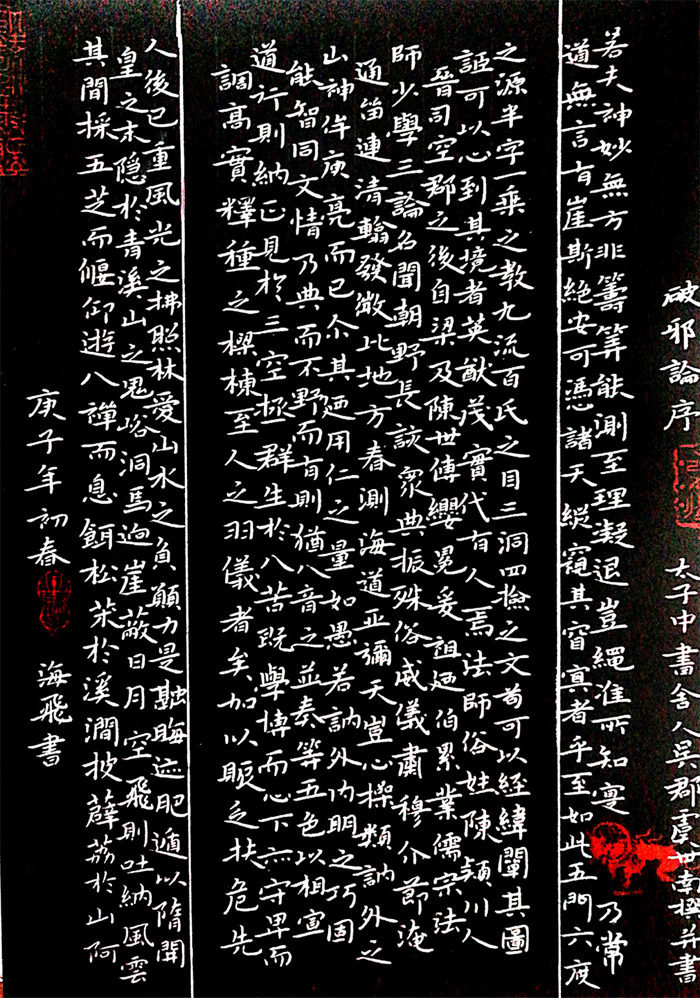 破邪論序 太子中書舍人吳郡虞世南撰并書
若夫神妙無方非籌筭能測至理凝退豈繩准所知寔乃常
道無言有崖斯絕安可憑諸天縱窺其窅寘者乎至如此五門六度
之源半字一乘之教九流百氏之目三洞四撿之文苟可以經緯闡其圖
詎可以心到其境者英猷茂實代有人焉法師俗姓陳潁川人
晉司空郡之後自梁及陳世傳纓冕爰祖廼伯累業儒宗法
師少學三論名聞朝野長該衆典振殊俗威儀肅穆介節淹
通笛連清發徽比地方春測海道亞彌天豈心操類訥外之
山神侔庾亮而已尒其廼用仁之量如愚若訥外内明之巧固
能智同文情乃典而不野而有則猶八音之並奏等五色以相宣
道行則納正見於三空拯群生於八苦既學博而心下亦守卑而
調高實釋種之樑棟至人之羽儀者矣加以賑乏扶危先
人後已重風光之拂照林愛山水之負願力是融晦迹肥遁以隋開
皇之末隐於青溪山之鬼峪洞焉迥崖蔽日月空飛則吐納風雲
其間採五芝而偃仰遊八禪而息餌松朮於溪澗披薜荔於山阿
庚子年初春 海飛書